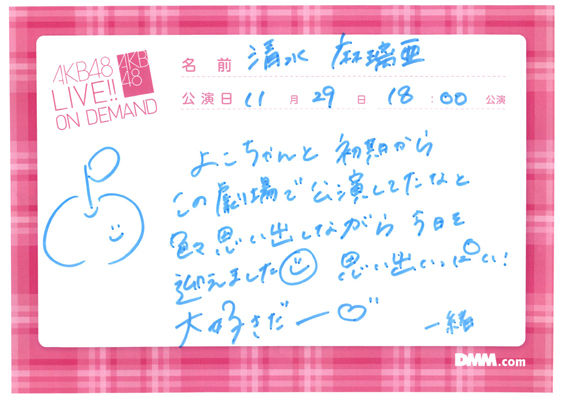 AKB48
LIVE!!
ON DEMAND
AKB
48
名前 清水 麻璃亜
公演日 11月29日 18:00公演
よこちゃんと 初期から
この劇場で公演してたなと
色々思い出しながら今日を
迎えました 思い出いっぱい!
大好きだー♡
一緒
DMM.com